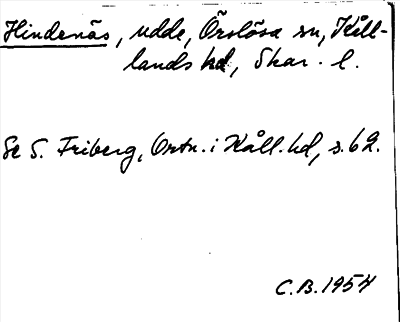 Hindenäs, udde, Örslösa sn, Kåll-
lands hd, Skar. l.
Se S. Friberg, Ortn. i Kåll. hd, s. 62.
C.B. 1954